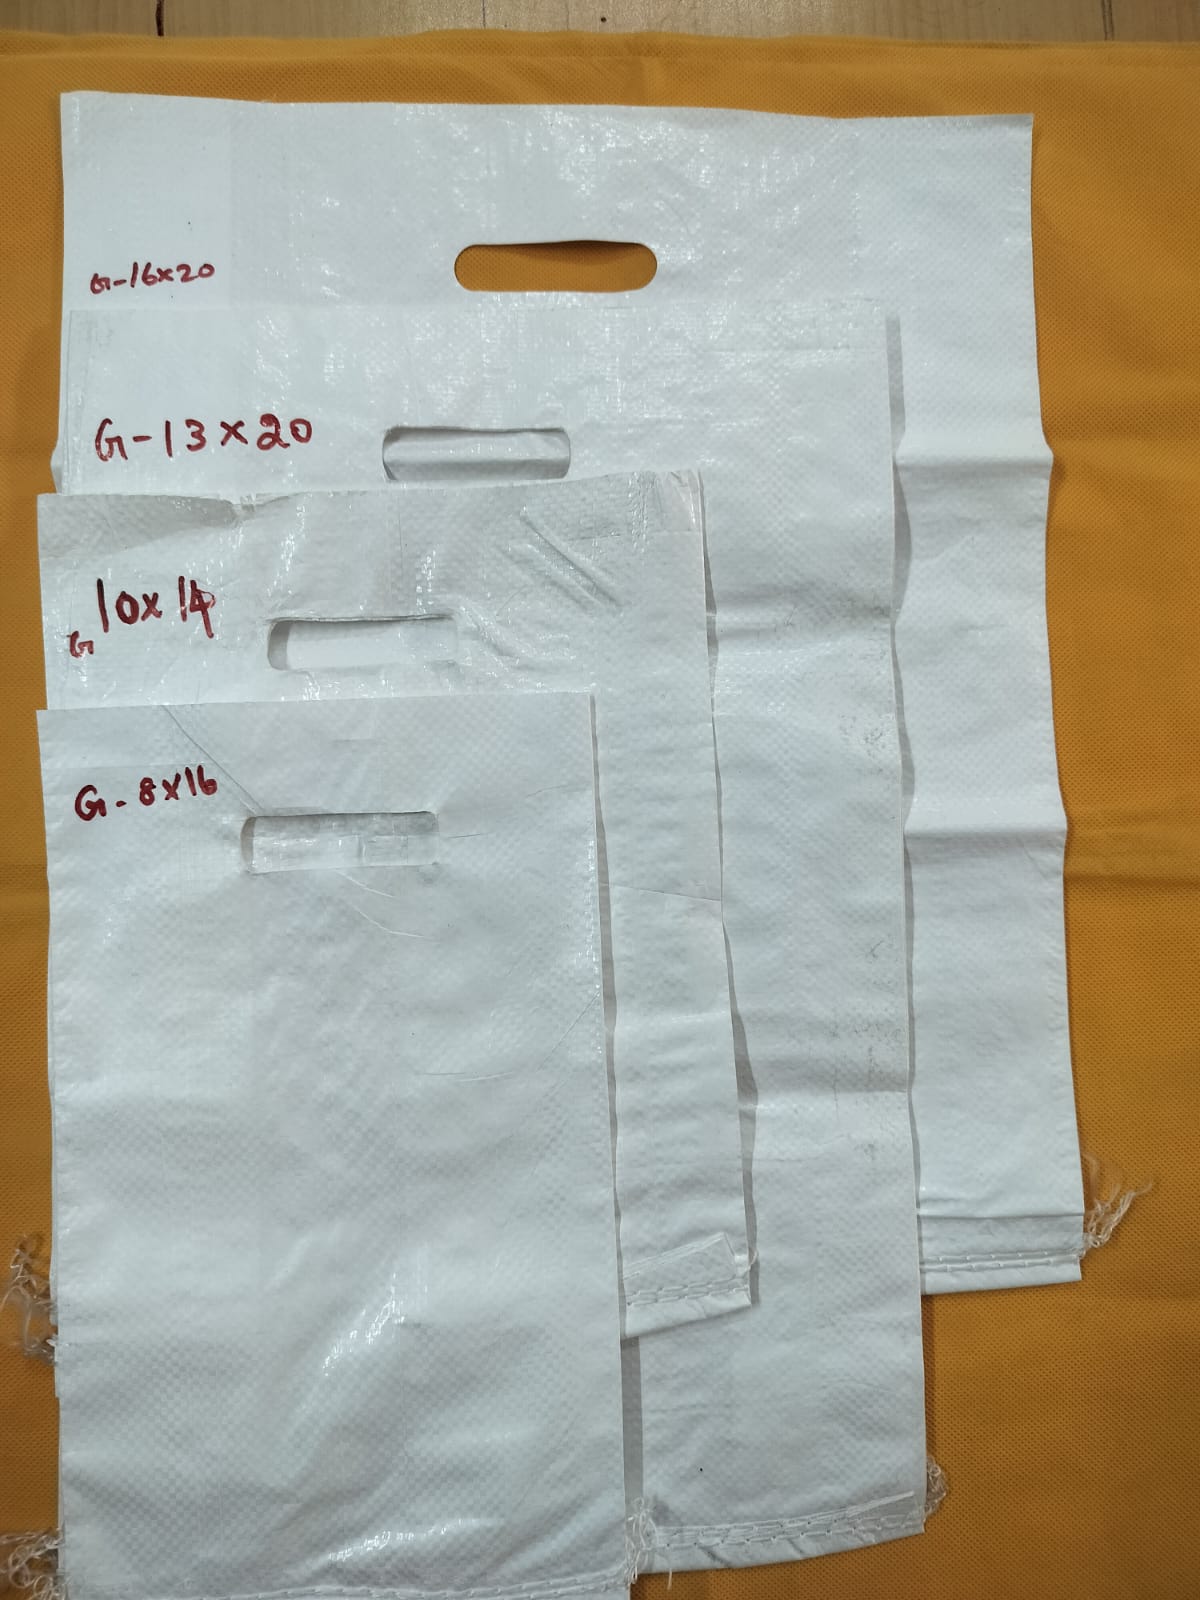 G-16x20
G-13x20
G 10x14
G-8x16